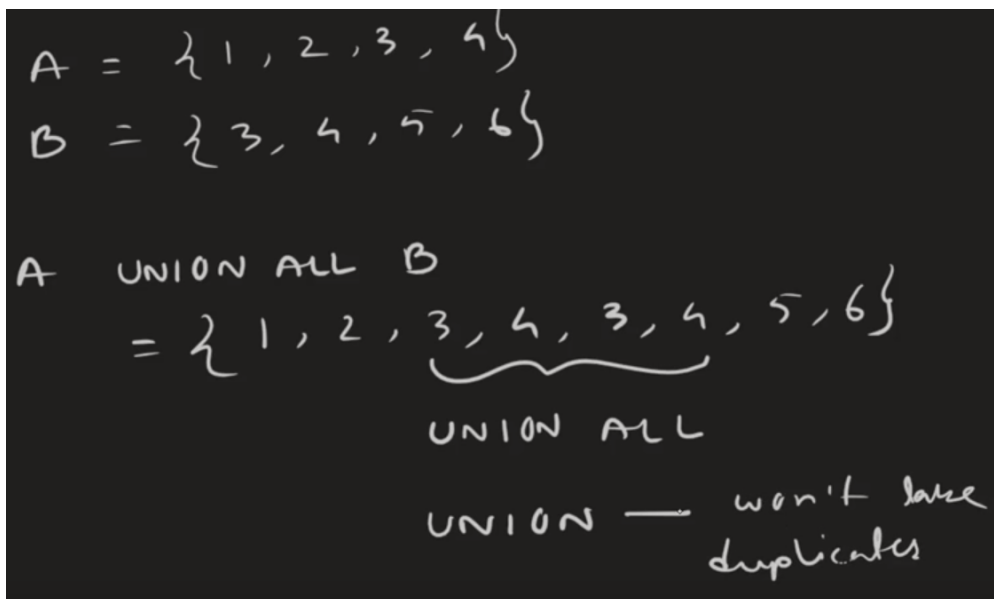 A = {1, 2, 3, 4}
B = {3, 4, 5, 6}
A UNION ALL B
= {1, 2, 3, 4, 3, 4, 5, 6}
UNION ALL
UNION — won't take
duplicates